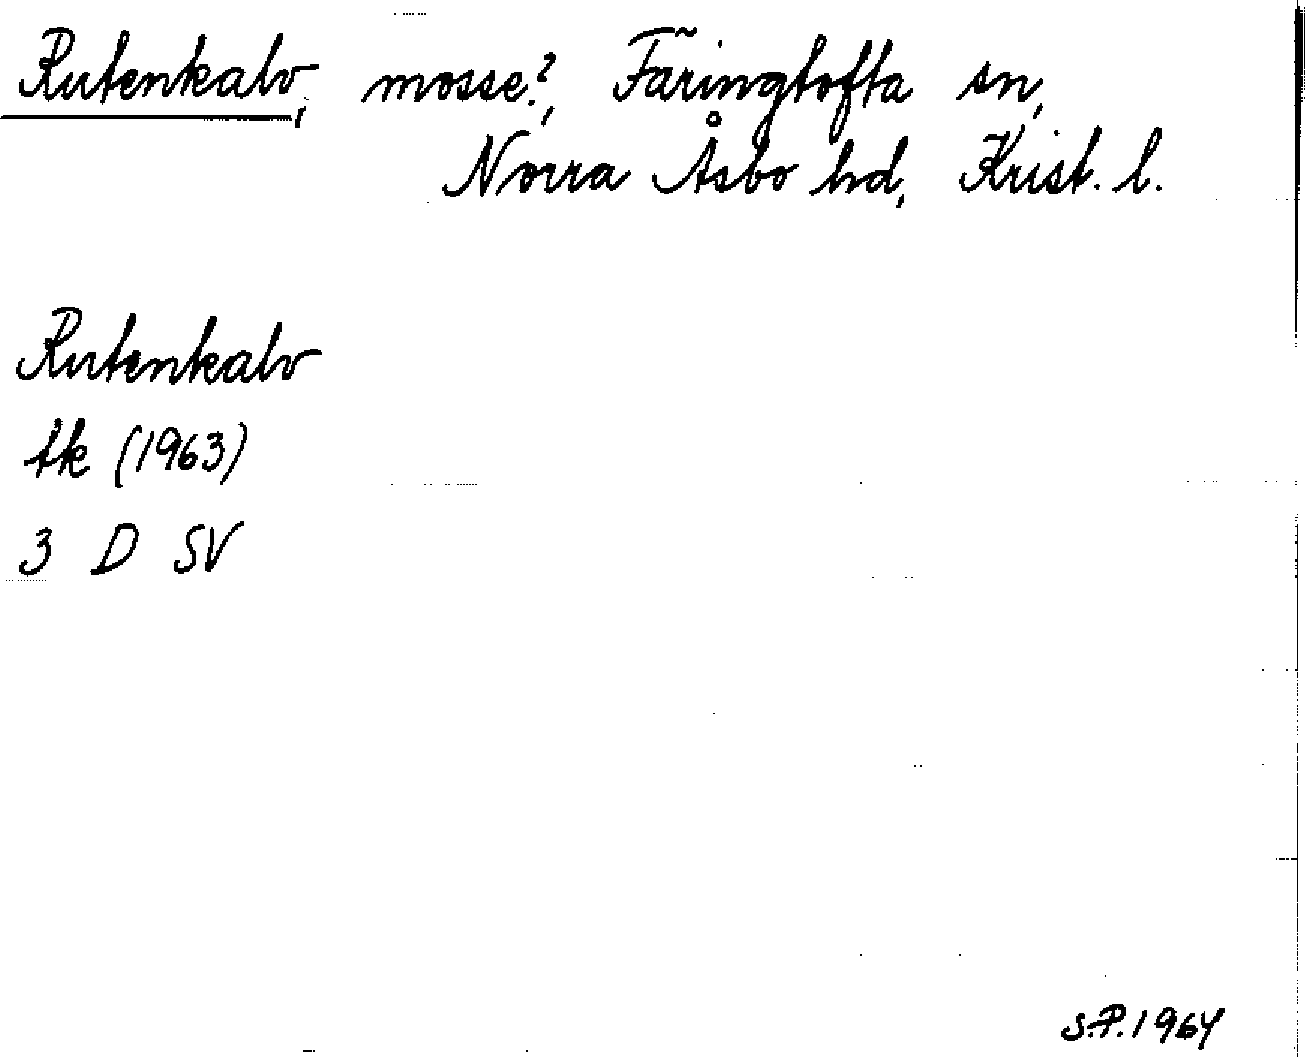 Rutenkalv, mosse?, Färingtofta sn,
Norra Åsbo hd, Krist. l.
Rutenkalv
tk (1963)
3 D SV
S.P. 1964